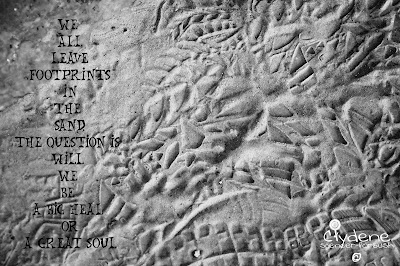 WE
ALL
LEAVE
FOOTPRINTS
IN
THE
SAND
THE QUESTION IS
WILL
WE
BE
A BIG HEAL
OR
A GREAT SOUL
clydene